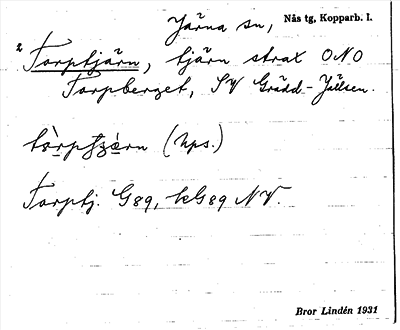 Järna sn, Nås tg, Kopparb. l.
2 Torptjärn, tjärn strax ONO
Torpberget, SV Grädd-Jällsen.
tòrptʃæ̀rn (hps.)
Torptj. G89, kG89 NV.
Bror Lindén 1931